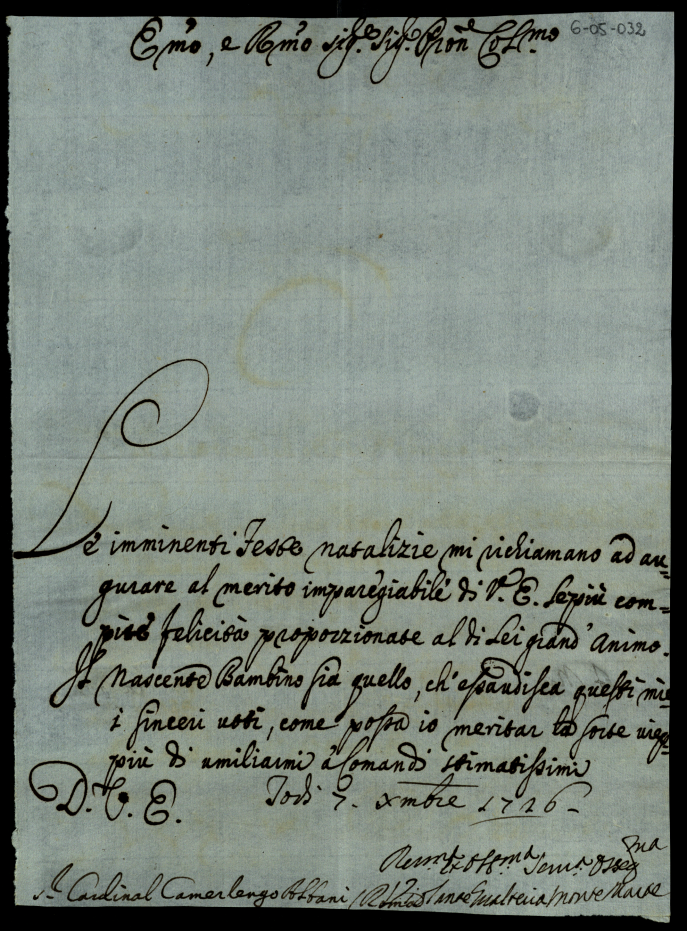 6-05-032
Em̃o, e Rm̃o Sig.r Sig.r Pron̄ Col.mo
Le imminenti Feste natalizie mi richiamano ad au=
gurare al merito imparegiabile di V.a E. le più com=
pite felicità proporzionate al di Lei grand' Animo.
Il Nascente Bambino sia quello, ch'esaudisca questi mie=
i sinceri voti, come possa io meritar la sorte viep=
più di umiliarmi à Comandi stimatissimi
D. V. E. Todi 7. Xmbre 1726
Serva Osseq.ma
S.r Cardinal Camerlengo Albani (Roma)